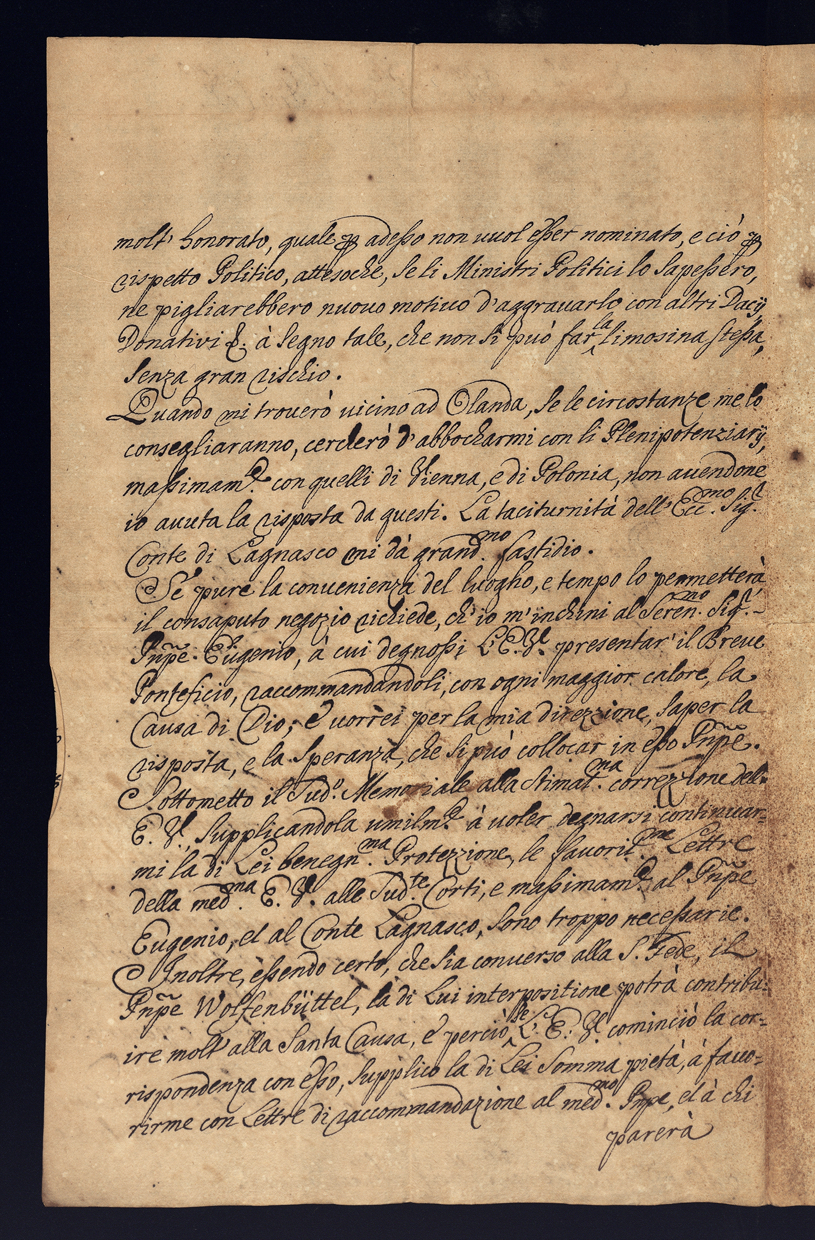 molt' honorato, quale p adesso non vuol esser nominato, e ciò p
rispetto Politico, attesoche, se li Ministri Politici lo sapessero,
ne pigliarebbero nuovo motivo d'aggravarlo con altri Dacij,
Donativi &. à segno tale, che non si può far la limosina stessa,
senza gran rischio.
Quando mi troverò vicino ad Olanda, se le circostanze me lo
consegliaranno, cercherò d'abbocharmi con li Plenipotenziarij,
massimam.te con quelli di Vienna, e di Polonia, non avendone
io avuta la risposta da questi. La taciturnità dell' Ecc.mo Sig.r
Conte di Lagnasco mi dà grand.mo fastidio.
Se pure la convenienza del luogho, e tempo lo permetterà
il consaputo negozio richiede, ch'io m'inchini al Seren.mo Sig.r
Pnpe. Eugenio, à cui degnossi L'E. V. presentar il Breve
Ponteficio, raccommandandoli, con ogni maggior calore, la
Causa di Dio; e vorrei per la mia direzzione, saper la
risposta, e la speranza, che si può collocar in esso Pnpe.
Sottometto il sud.o Memoriale alla stimat.ma correzzione dell'
E. V., supplicandola umilm.te à voler degnarsi continuar-
mi la di Lei benegn.ma Protezzione, le favorit.me Lettre
della med.ma E. V. alle sud.te Corti, e massimam.te al Pnpe
Eugenio, et al Conte Lagnasco, sono troppo necessarie.
Inoltre, essendo certo, che sia converso alla S. Fede, il
Pnpe Wolfenbüttel, la di Lui interpositione potrà contribu-
ire molt' alla Santa Causa, e perciò, se L'E. V. cominciò la cor-
rispondenza con esso, supplico la di Lei somma pietà, à favo-
rirme con Lettre di raccommandazione al med.mo Pnpe, et à chi
parerà